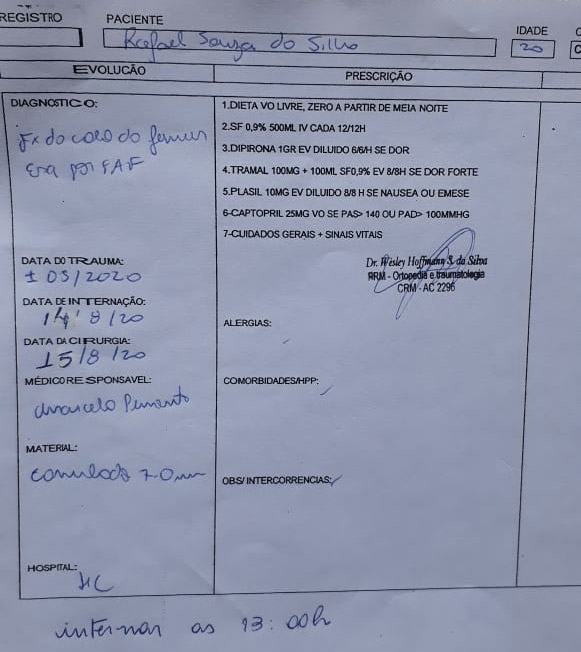 REGISTRO
PACIENTE
IDADE
Rafael Souza do Silho
20
EVOLUCÃO
PRESCRIÇÃO
DIAGNOSTICO:
Fx do colo do femur
Esq por FAF
1.DIETA VO LIVRE, ZERO A PARTIR DE MEIA NOITE
2.SF 0,9% 500ML IV CADA 12/12H
3.DIPIRONA 1GR EV DILUIDO 6/6/H SE DOR
4.TRAMAL 100MG + 100ML SF0,9% EV 8/8H SE DOR FORTE
5.PLASIL 10MG EV DILUIDO 8/8 H SE NAUSEA OU EMESE
6-CAPTOPRIL 25MG VO SE PAS> 140 OU PAD> 100MMHG
7-CUIDADOS GERAIS + SINAIS VITAIS
Dr. Wesley Hoffmann S. da Silva
RRM - Ortopedia e traumatologia
CRM - AC 2296
DATA DO TRAUMA:
± 05/2020
DATA DE INTERNAÇÃO:
14/8/20
DATA DA CIRURGIA:
15/8/20
MÉDICO RESPONSAVEL:
Marcelo
MATERIAL:
canulado 7.0mm
HOSPITAL:
HC
ALERGIAS:
COMORBIDADES/HPP:
OBS/ INTERCORRENCIAS:
internar as 13:00h